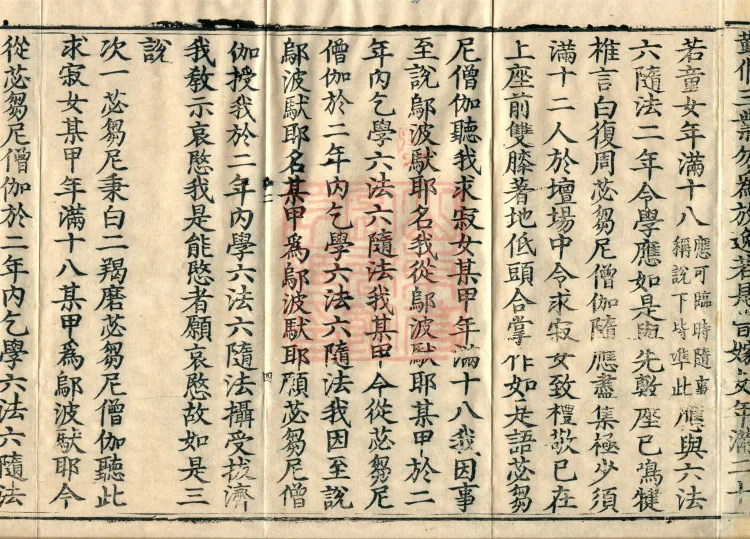 若是曾嫁女年滿
若童女年滿十八應可臨時隨事稱說下皆準此應與六法
六隨法二年令學應如是與先敷座已鳴犍
椎言白復周苾芻尼僧伽隨應盡集極少須
滿十二人於壇場中令求寂女致禮敬已在
上座前雙膝著地低頭合掌作如是語苾芻
尼僧伽聽我求寂女某甲年滿十八我因事
至說鄔波馱耶名我從鄔波馱耶某甲於二
年內乞學六法六隨法我某甲今從苾芻尼
僧伽於二年內乞學六法六隨法我因至說
鄔波馱耶名某甲為鄔波馱耶願苾芻尼僧
四
伽授我於二年內學六法六隨法攝受拔濟
我教示哀愍我是能愍者願哀愍故如是三
說
次一苾芻尼秉白二羯磨苾芻尼僧伽聽此
求寂女某甲年滿十八某甲為鄔波馱耶今
從苾芻尼僧伽於二年內乞學六法六隨法